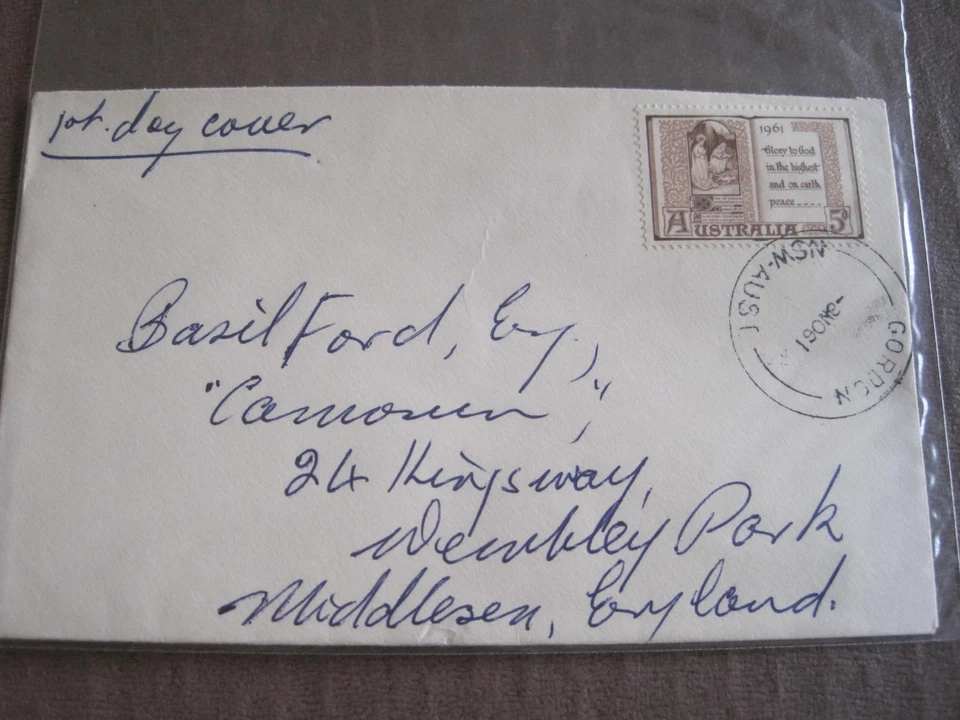 1st. day cover
1961
Glory to God
in the highest
and on earth
peace ....
AUSTRALIA 5D
GORDON
NSW-AUST
8NO61
Basil Ford, Esq.,
"Camosun",
24 Kingsway,
Wembley Park
Middlesex, England.